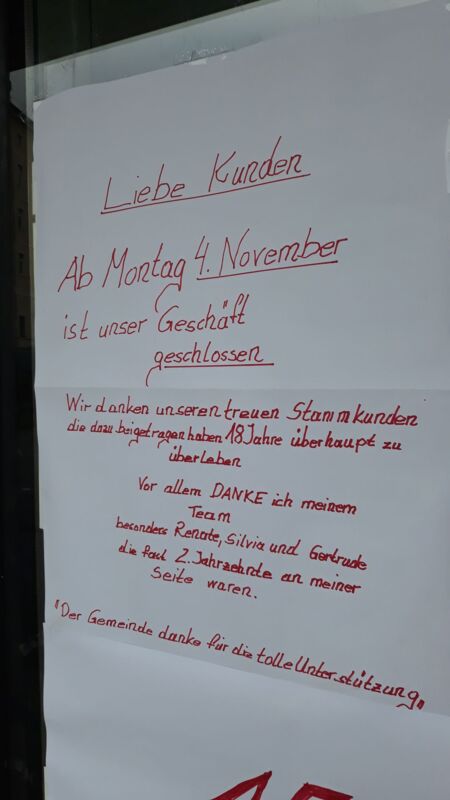 Liebe Kunden
Ab Montag 4. November
ist unser Geschäft
geschlossen
Wir danken unseren treuen Stammkunden
die dazu beigetragen haben 18 Jahre überhaupt zu
überleben
Vor allem DANKE ich meinem
Team
besonders Renate, Silvia und Gertrude
die fast 2. Jahrzehnte an meiner
Seite waren.
"Der Gemeinde danke für die tolle Unterstützung"